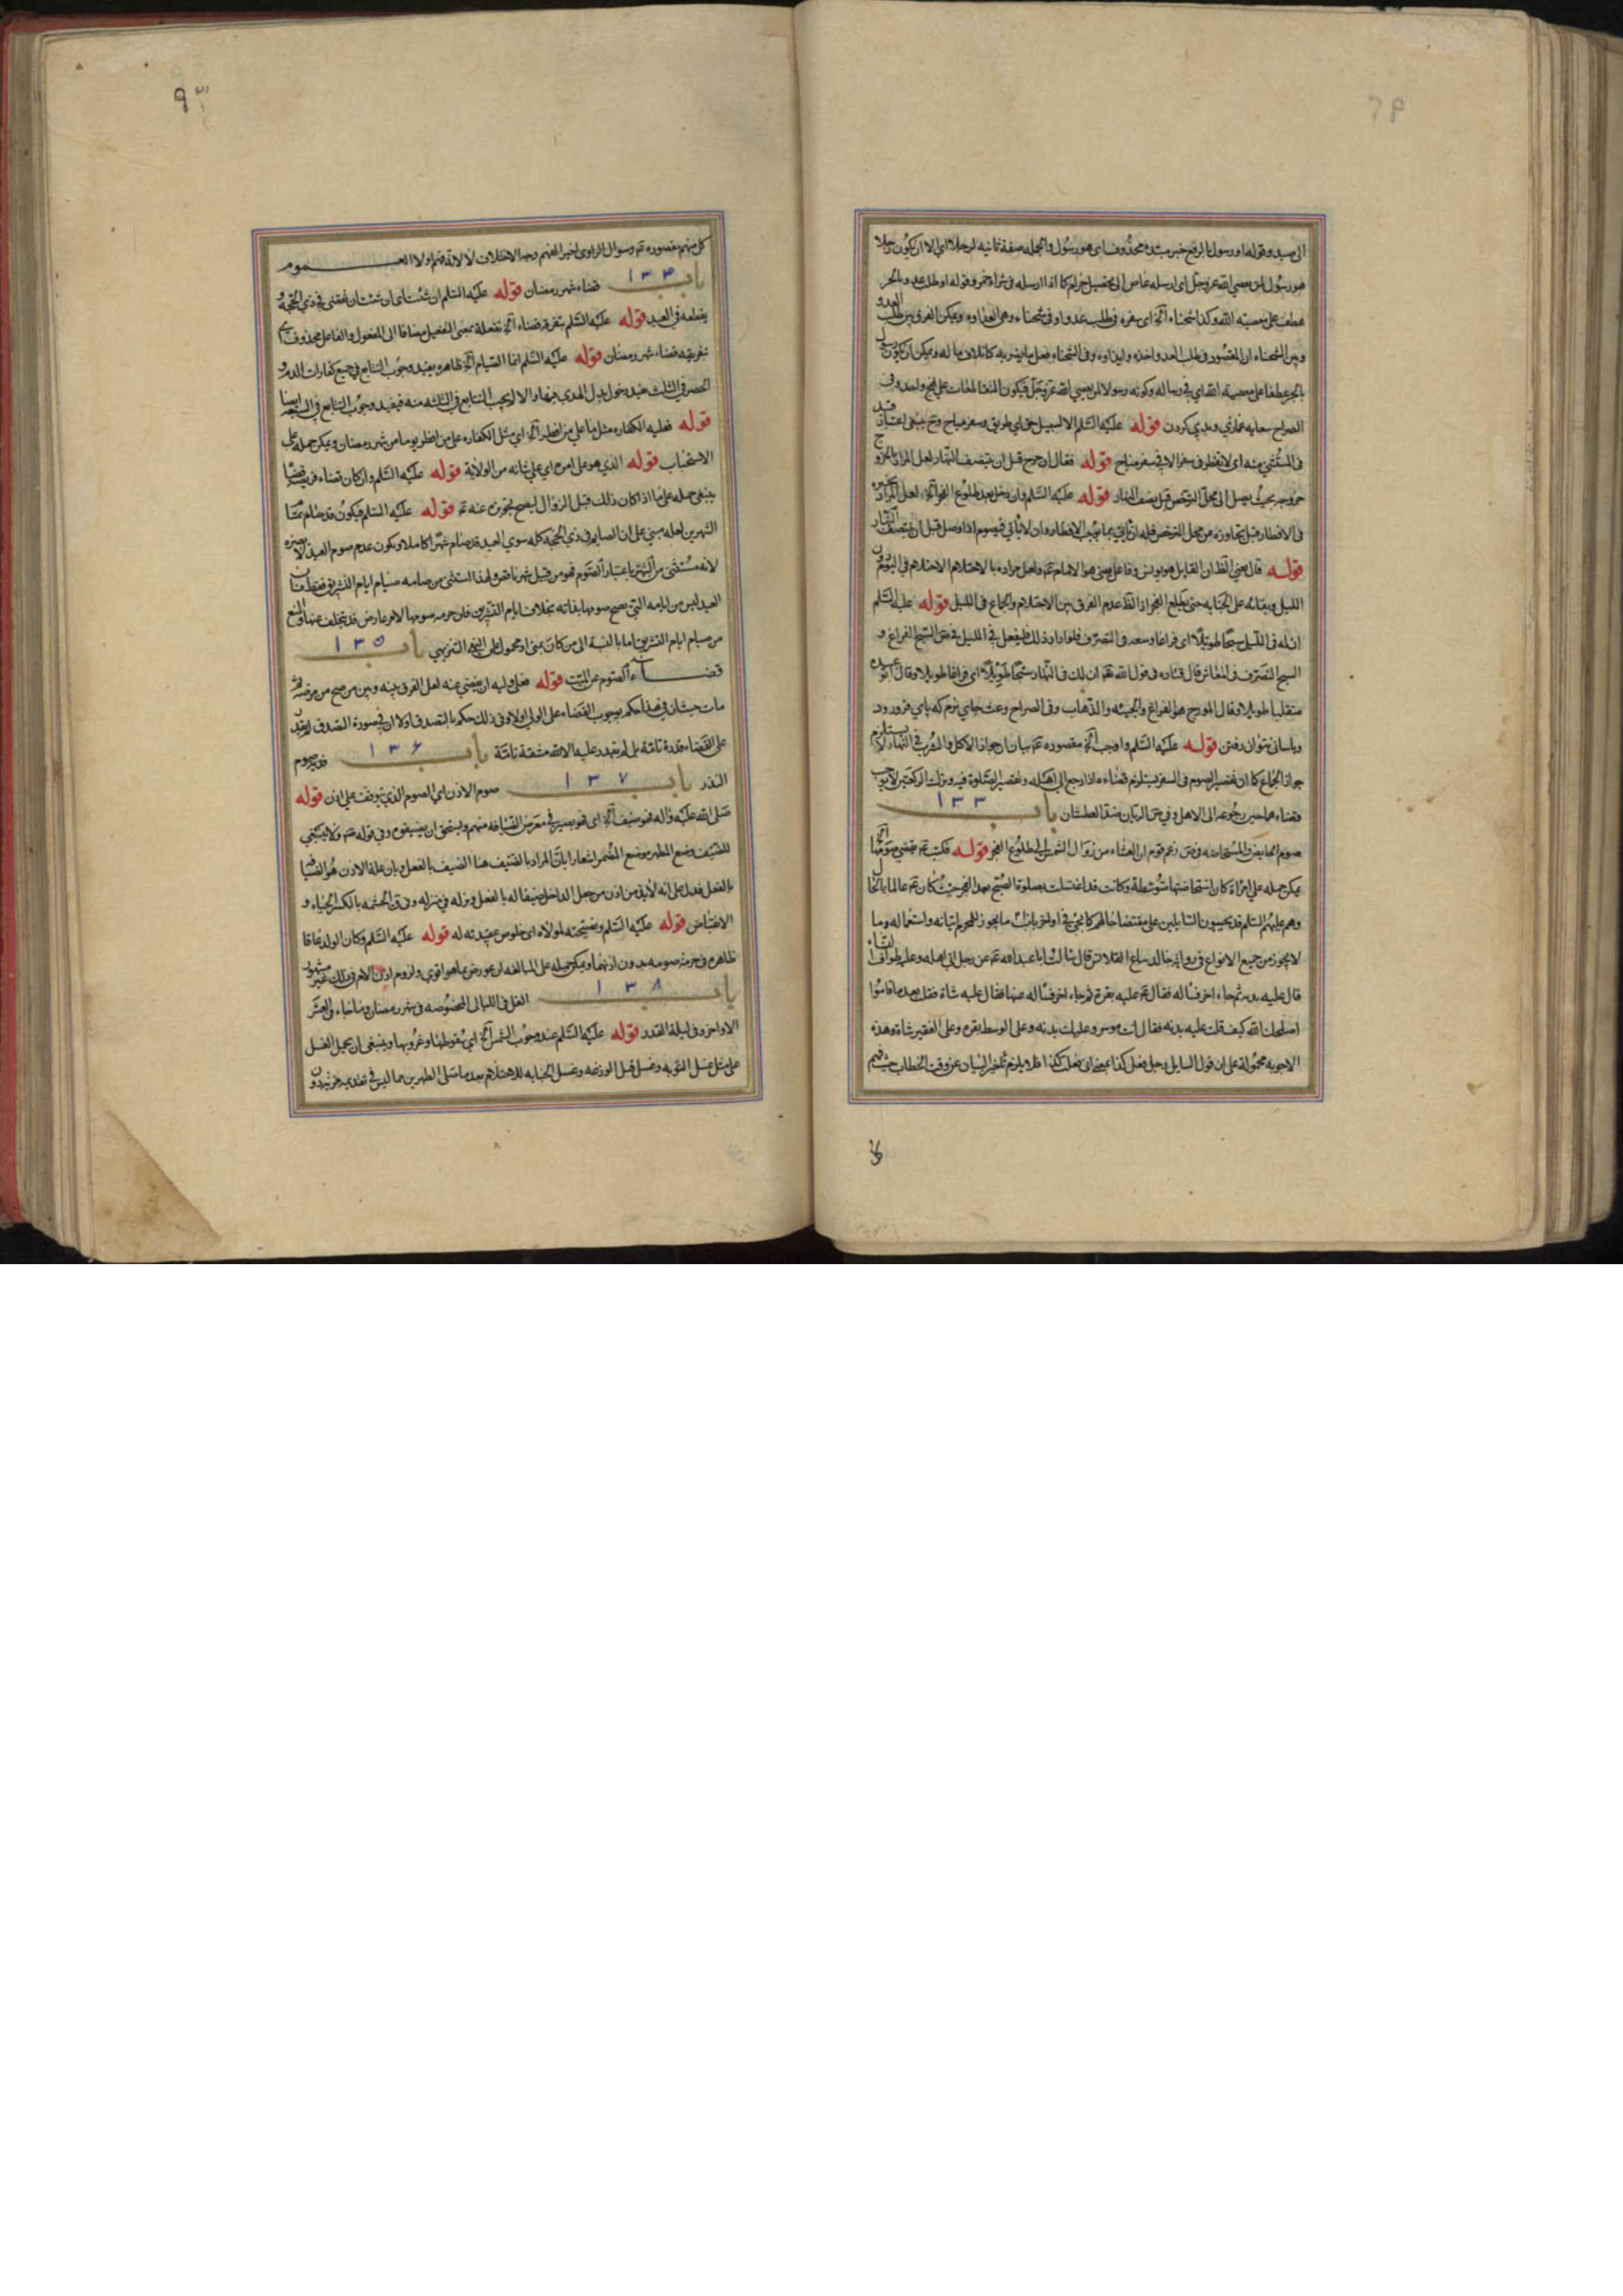 الى صيد وقوله او رسول بالرفع خبر مبتدء محذوف اى هو رسول والجمله صفة ثانيه لرجلا اى الا ان يكون رجلا
هو رسول لمن يعصي الله عز وجل اى ارسله عاص الى تحصيل حرام كما اذا ارسله فى شراء خمر وقوله او طلب عدو بالجر
عطف على معصيته الله وكذا شحناء آلخ اى سفره فى طلب عدو او فى شحناء وهى العداوه ويمكن الفرق بين طلب العدو
وبين الشحناء ان المقصود فى طلب العدو اخذه وايذاوه وفى الشحناء فعل ما يضر به كاتلاف ماله ويمكن ان يكون رسول
بالجر عطفا على معصيته الله اي فى رساله وكونه رسولا لمن يعصي الله عز وجل فيكون المتعاطفات على نهج واحد وفى
الصراح سعايه غمازي وبدي كردن قوله عليه السلم الا لسبيل حق اي طريق وسفر مباح وح ينبغى اعتبار قيد
فى المستثنى منه اى لا يفطر فى سفر الا فى سفر مباح قوله فقال ان خرج قبل ان ينتصف النهار لعل المراد بالخروج
خروجه بحيث يصل الى محل الترخص قبل نصف النهار قوله عليه السلم وان دخل بعد طلوع الفجر آلخ لعل المراد تخييره
فى الافطار قبل تجاوزه من محل الترخص فله ان ياتى بما يوجب الافطار وان لا ياتي فيصوم اذا وصل قبل ان ينتصف النهار
قوله قال يعني الظ ان القايل هو يونس وفاعل يعنى هو الامام عم ولعل مراده بالاحتلام الاحتلام فى اليوم دون
الليل وبقائه على الجنابه حتى يطلع الفجر اذ الظ عدم الفرق بين الاحتلام والجماع فى الليل قوله عليه السلم
ان له فى الليل سبحا طويلا اى فراغا وسعه فى التصرف فلو اراد ذلك فليفعل فى الليل فى ص السبح الفراغ و
السبح التصرف فى المعاش قال قتاده فى قول الله تعم ان لك فى النهار سبحا طويلا اى فراغا طويلا وقال ابو عبيده
متقلبا طويلا وقال المورج هو الفراغ والجيئه والذهاب وفى الصراح وعث جاي نرم كه پاي فرو رود
وباسانى نتوان رفتن قوله عليه السلم واوجب آلخ مقصوده عم بيان ان جواز الاكل والشرب فى النهار لا يستلزم
جواز الجماع كما ان تقصير الصوم فى السفر يستلزم قضاءه اذا رجع الى اهله وتقصير الصلوة فيه وترك الركعتين لا يوجب
قضاءهما حين رجوعه الى الاهل وفى ص الريان ضد العطشان باب ١٣٣
صوم الحايض والمستحاضه وفى ص زعم قوم ان العشاء من زوال الشمس الى طلوع الفجر قوله فكتب عم تقضى صومها آلخ
يمكن حمله على امراة كان استحاضتها متوسطة وكانت قد اغتسلت بصلوة الصبح بعد الفجر حيث كان عم عالما بالحال
وهم عليهم السلم قد يجيبون السايلين على مقتضا حالهم كما يجئ فى اواخر باب ما يجوز للمحرم اتيانه واستعماله وما
لا يجوز من جميع الانواع فى روايه خالد بياع القلانس قال سالت ابا عبد الله عم عن رجل اتى اهله وعليه طواف النساء
قال عليه بدنه ثم جاءه اخر فساله فقال عم عليه بقرة ثم جاءه اخر فساله عنها فقال عليه شاة فقلت بعد ما قاموا
اصلحك الله كيف قلت عليه بدنه فقال انت موسر وعليك بدنه وعلى الوسط بقره وعلى الفقير شاة وهذه
الاجوبه محمولة على ان قول السايل رجل فعل كذا بمعنى انى فعلت كذا فلا يلزم تاخير البيان عن وقت الخطاب حيث فهم
كل منهم مقصوده عم وسوال الراوى اخيرا لفهم وجه الاختلاف لا لانه فهم اولا العموم
باب ١٣٤ قضاء شهر رمضان قوله عليه السلم ان شئت اى ان شئت ان تقضى فى ذي الحجة و
يقطعه فى العيد قوله عليه السلم بتفرقه قضاء آلخ تفعلة بمعنى التفعيل مضافا الى المفعول والفاعل محذوف اى
تفريقه قضاء شهر رمضان قوله عليه السلم انما الصيام آلخ ظاهره يفيد وجوب التتابع فى جميع كفارات الدم و
الحصر فى الثلث يفيد دخول بدل الهدى فيها والا لا يجب التتابع فى الثلثه منه فيفيد وجوب التتابع فى السبعه ايضا
قوله فعليه الكفاره مثل ما على من افطر آلخ اى مثل الكفاره على من افطر يوما من شهر رمضان ويمكن حمله على
الاستحباب قوله الذي هو على امره اي على شانه من الولاية قوله عليه السلم وان كان قضاء فريضه فافطرها
ينبغى حمله على ما اذا كان ذلك قبل الزوال ليصح تجويزه عنه عم قوله عليه السلم فيكون قد صام بمنا
الشهرين لعله مبني على ان الصايم فى ذي الحجه كله سوي العيد قد صام شهرا كاملا ويكون عدم صوم العيد لا يضره
لانه مستثنى من الشهر باعتبار الصوم فهو من قبيل شهر ناقص ولهذا استثنى من صيامه صيام ايام التشريق فقط فان
العيد ليس من ايامه التي يصح صومها بذاته بخلاف ايام التشريق فان حرمه صومها لامر عارض قد يتخلف عنها والمنع
من صيام ايام التشريق اما بالنسبة الى من كان بمنى او محمول على النهى التنزيهى باب ١٣٥
قضاء الصوم عن الميت قوله فعلى وليه ان يقضى عنه لعل الفرق بينه وبين من صح من مرضه ثم
مات حيث ان فى هذا حكم بوجوب القضاء على الولى اولا وفى ذلك حكم بالتصدق اولا ان فى صورة التصدق لم يقدر
على القضاء قدرة تامة بل لم يقدر عليه الا لله مشقة تامة باب ١٣۶ فديه صوم
النذر باب ١٣٧ صوم الاذن اي الصوم الذي يتوقف على اذن قوله
صلى الله عليه واله فهو ضيف آلخ اى فهو يصير فى معرض الضيافه منهم ويستحق ان يضيفوه وفى قوله ص ولا ينبغي
للضيف وضع المظهر موضع المضمر اشعارا بان المراد بالضيف هنا الضيف بالفعل وبان علة الاذن هو الضيافه
بالفعل فدل على انه لابد من اذن من جعل الداخل ضيفا له بالفعل ونزله فى منزله وفى ق الحشمه بالكسر الحياء و
الانقباض قوله عليه السلم ونصيحته لمولاه اى خلوص عقيدته له قوله عليه السلم وكان الولد عاقا
ظاهره فى حرمة صومه بدون اذنهما ويمكن حمله على المبالغه ان عورض بما هو اقوى ولزوم اذن الام فى ذلك غير مشهور
باب ١٣٨ الغسل فى الليالى المخصوصه فى شهر رمضان وما جاء فى العشر
الاواخر وفى ليلة القدر قوله عليه السلم عند وجوب الشمس آلخ اي سقوطها وغروبها وينبغى ان يحمل الغسل
على مثل غسل التوبه وغسل قتل الوزغه وغسل الجنابه للاحتلام بعد ما صلى الظهرين مما ليس فى تقديمه حرمة بدون
٩٣